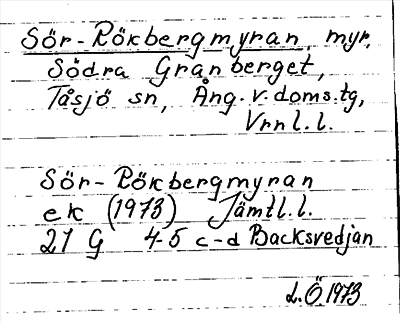 Sör-Rökbergmyran, myr,
Södra Granberget,
Tåsjö sn, Ång. v. doms.tg,
Vrnl.l.
Sör-Rökbergmyran
ek (1973) Jämtl.l.
21 G 4-5 c-d Backsvedjan
L.Ö 1973